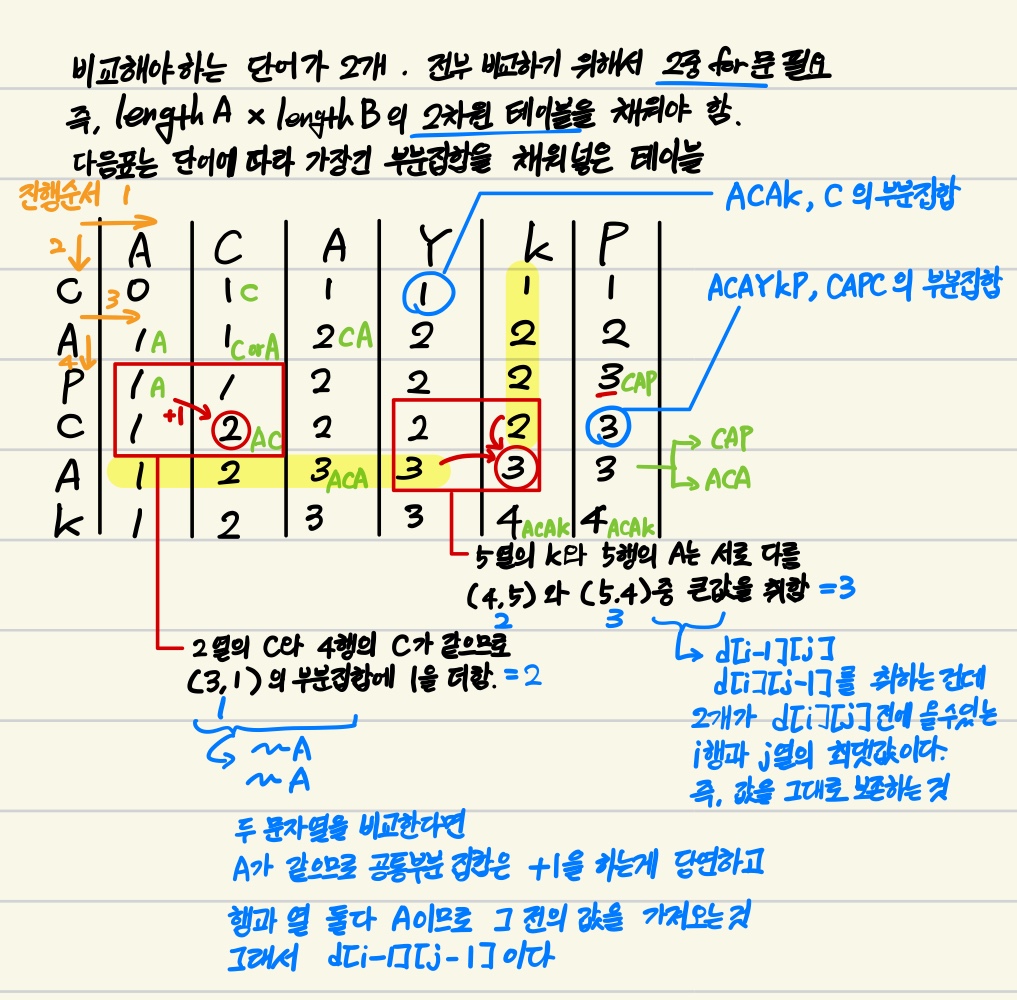 비교해야하는 단어가 2개. 전부 비교하기 위해서 2중 for문 필요
즉, length A × length B의 2차원 테이블을 채워야 함.
다음표는 단어에 따라 가장긴 부분집합을 채워넣은 테이블
진행순서 1
ACAk, C 의 부분집합
2 A C A Y k P
C 3 0 1 C 1 1 1 1
ACAYkP, CAPC 의 부분집합
A 4 1 A 1 C or A 2 CA 2 2 2
P 1 A 1 2 2 2 3 CAP
C 1 +1 2 AC 2 2 2 3
CAP
A 1 2 3 ACA 3 3 3
ACA
k 1 2 3 3 4 ACAk 4 ACAk
5열의 k와 5행의 A는 서로 다름
(4,5) 와 (5.4)중 큰값을 취함 =3
2 3
2열의 C와 4행의 C가 같으므로
(3,1)의 부분집합에 1을 더함. =2
1
~A
~A
d[i-1][j]
d[i][j-1]를 취하는 건데
2개가 d[i][j]전에 올수있는
i행과 j열의 최댓값이다.
즉, 값을 그대로 보존하는 것
두 문자열을 비교한다면
A가 같으므로 공통부분 집합은 +1을 하는게 당연하고
행과 열 둘다 A이므로 그 전의 값을 가져오는것
그래서 d[i-1][j-1] 이다